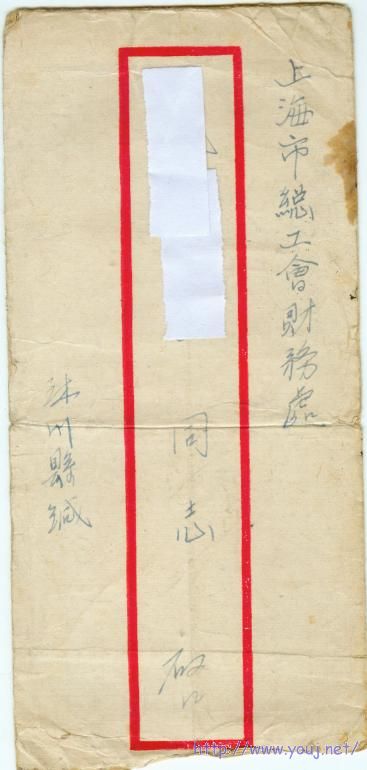 上海市総工會財務處
同志 啟
沐川縣緘
http://www.youj.net/